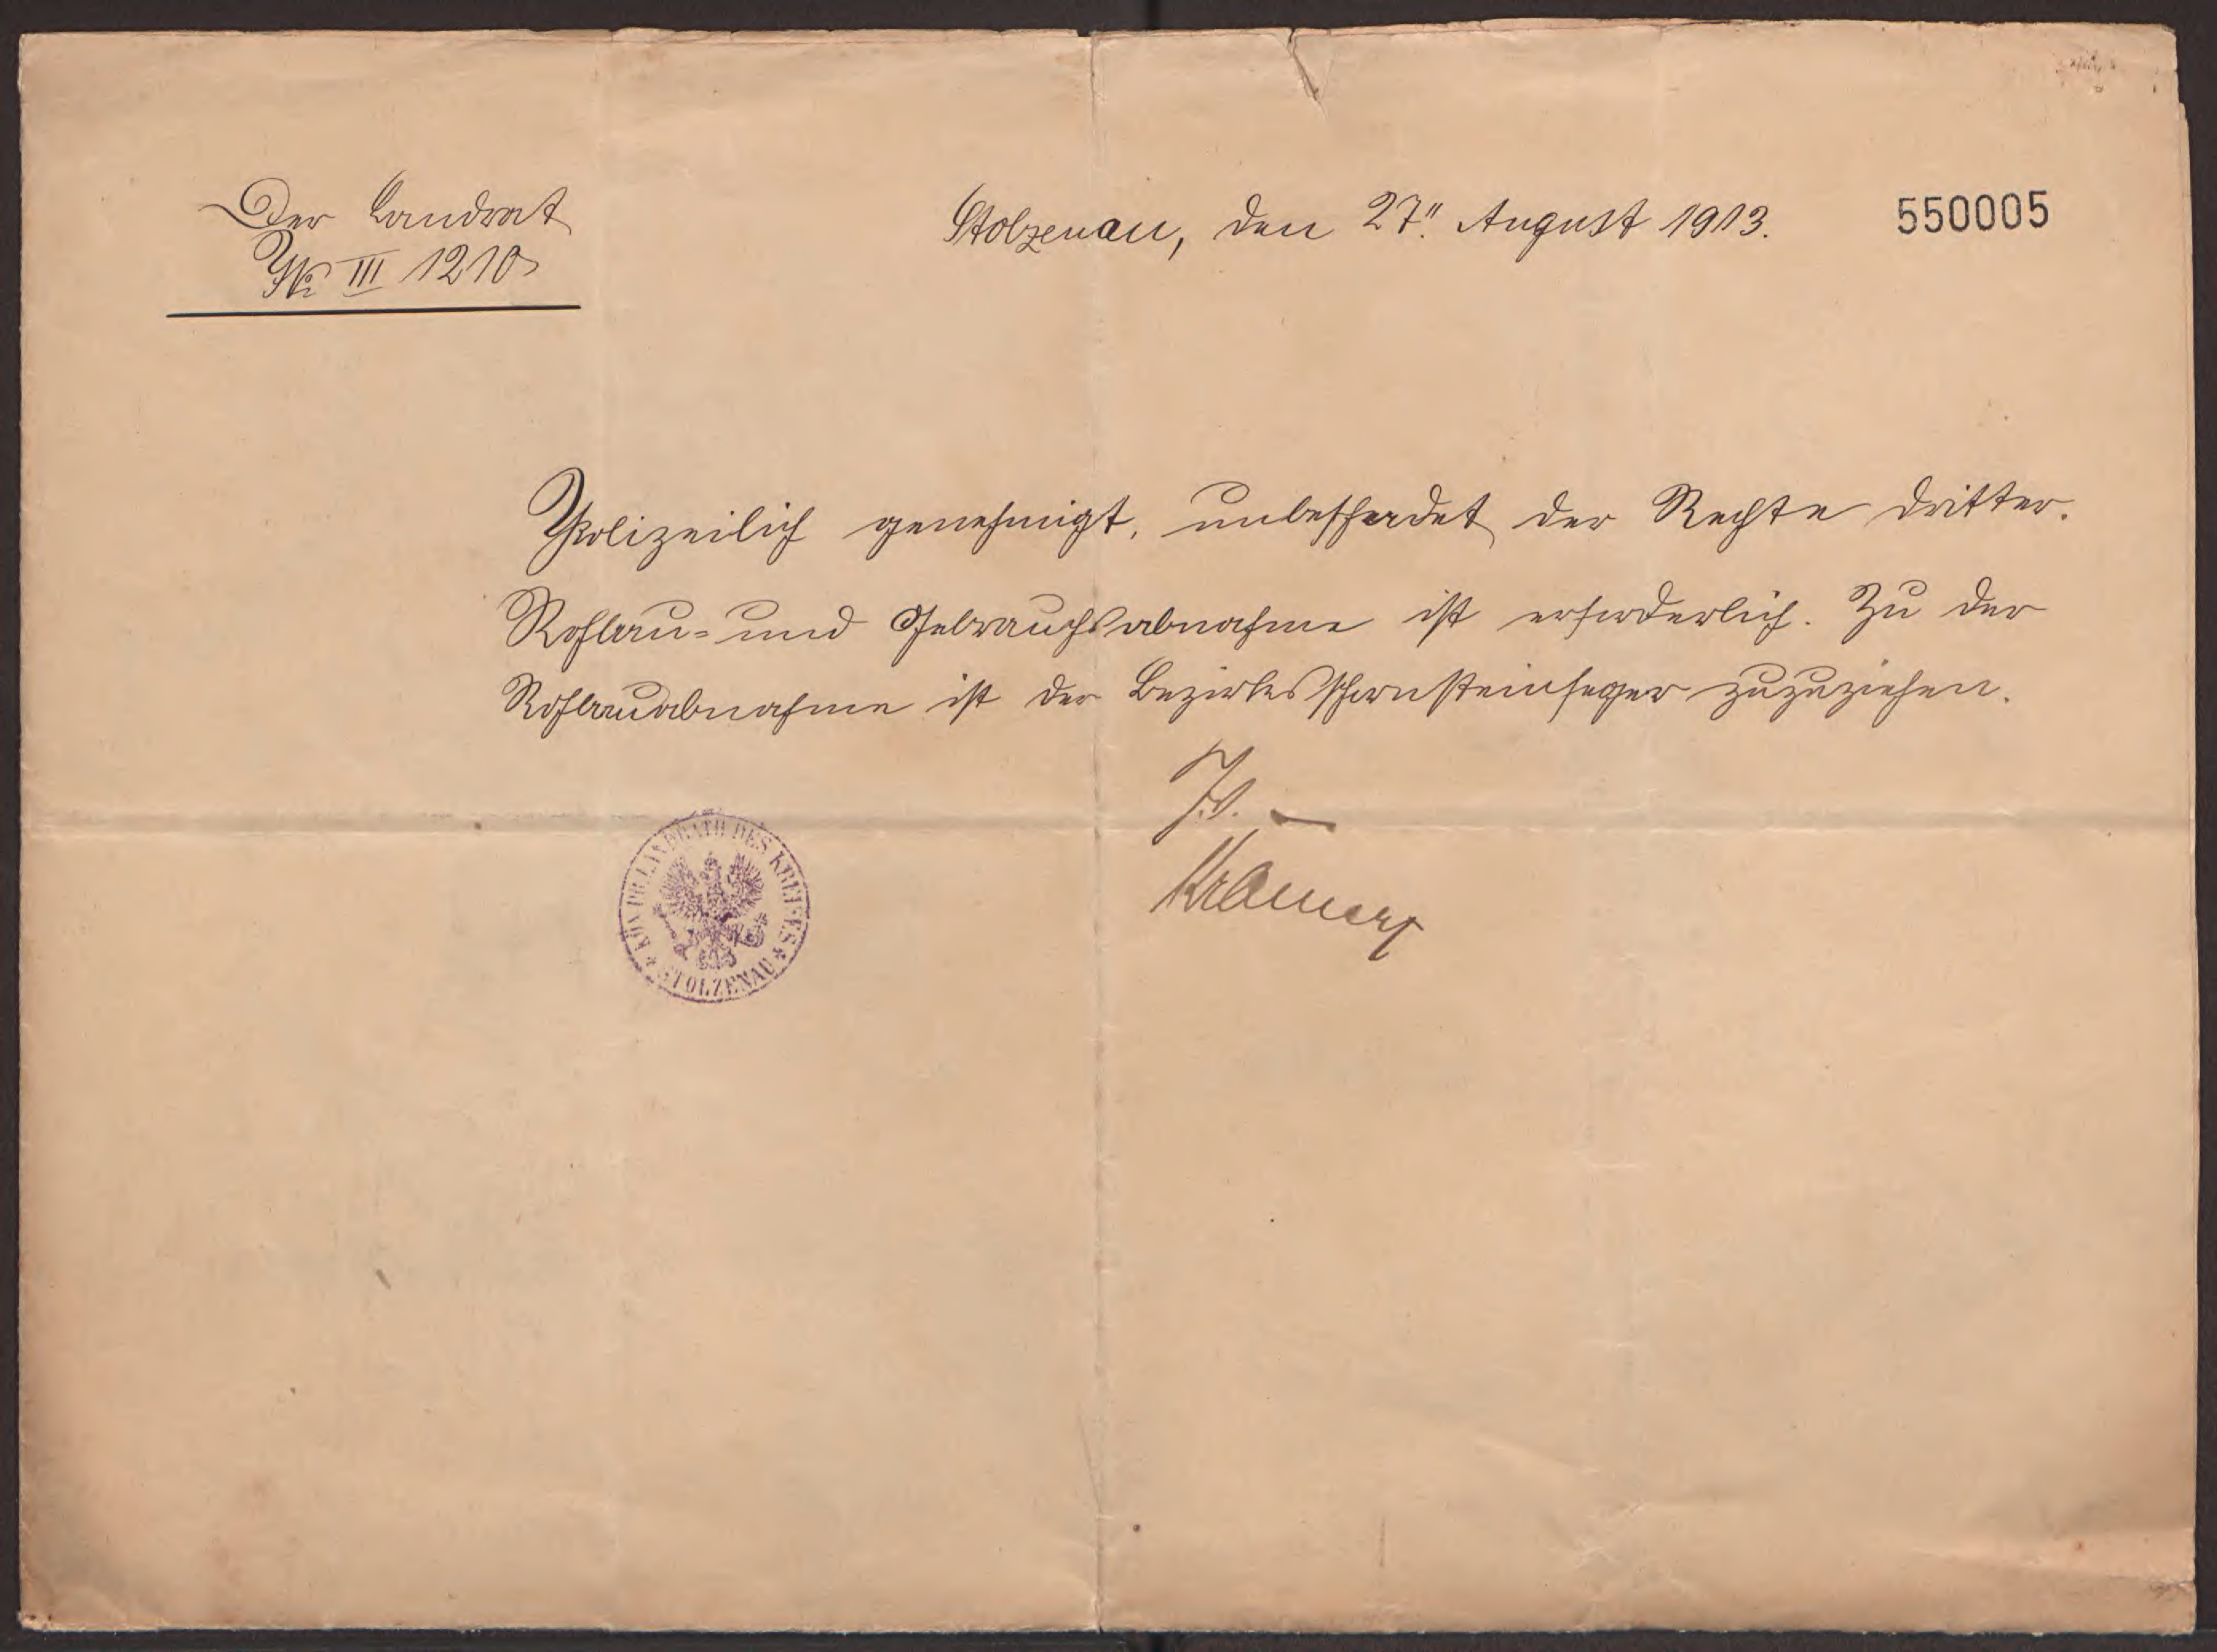 Der Landrat
No III 1210
Stolzenau, den 27. August 1913.
550005
Polizeilich genehmigt, unbeschadet der Rechte dritter.
Rohbau- und Gebrauchsabnahme ist erforderlich. Zu der
Rohbauabnahme ist der Bezirksschornsteinfeger zuzuziehen.
J.V.
KÖN. PR. LANDRATH DES KREISES
STOLZENAU